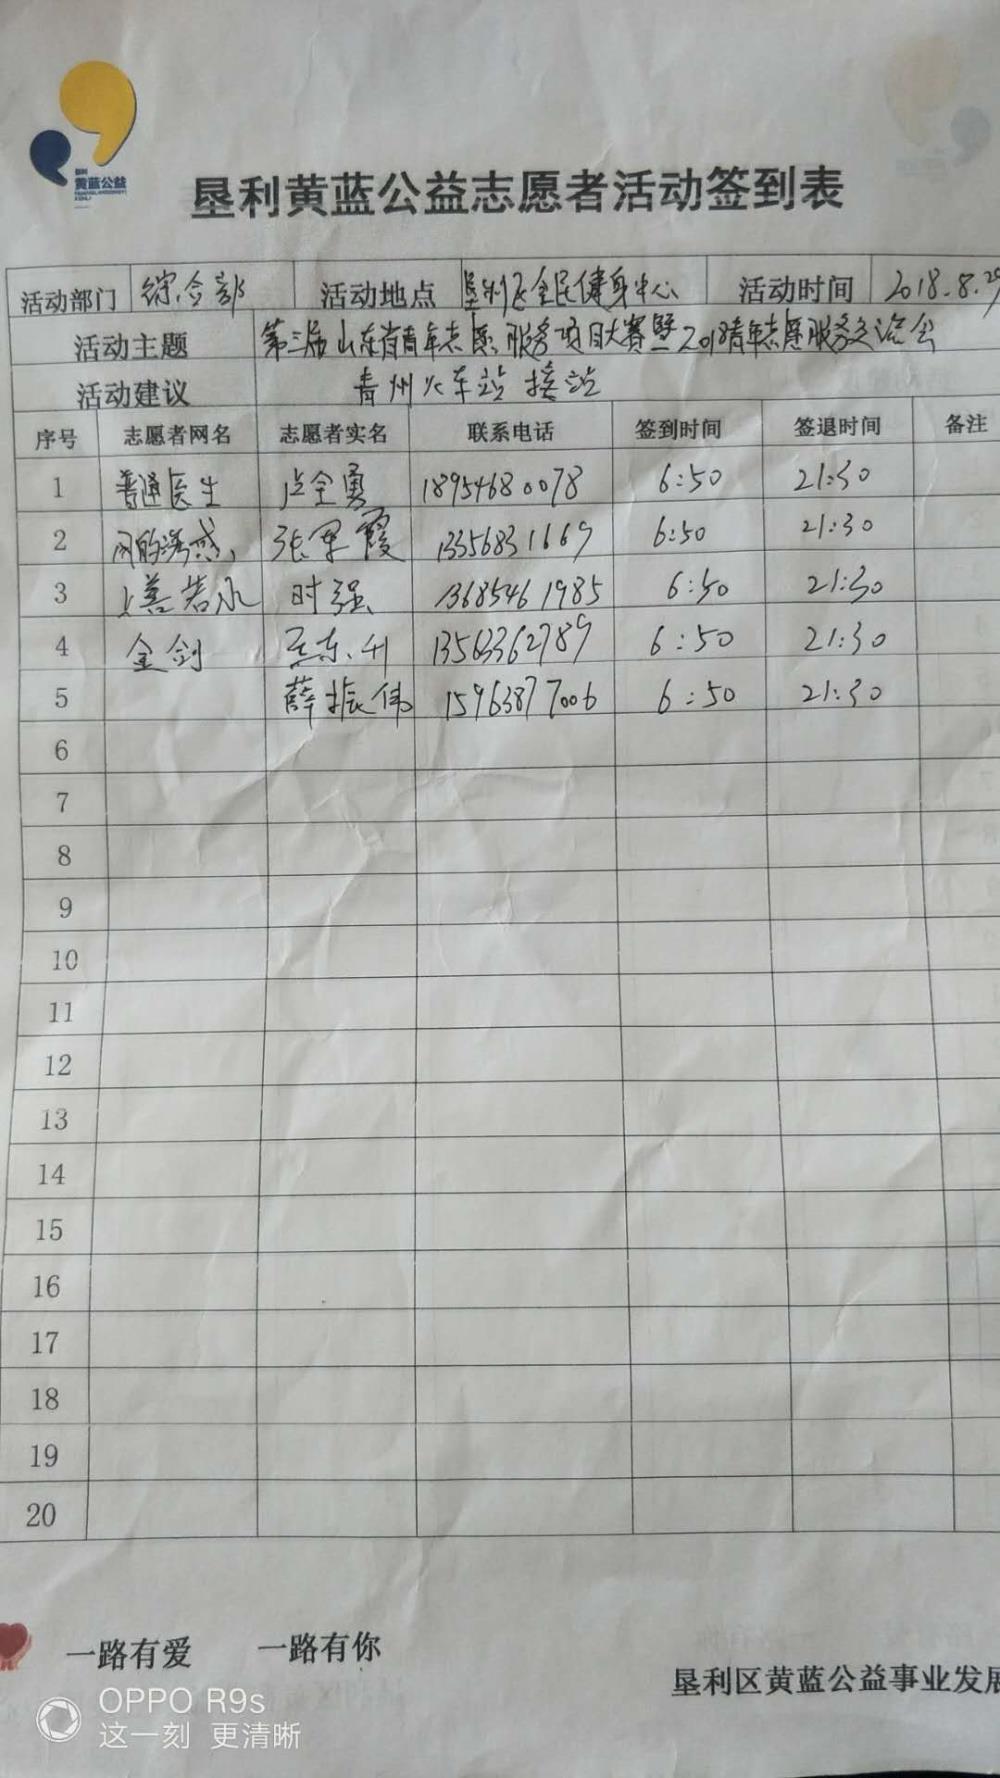 黄蓝公益
垦利黄蓝公益志愿者活动签到表
活动部门 综合部 活动地点 垦利区全民健身中心 活动时间 2018.8.29
活动主题 第三届山东省青年志愿服务项目大赛暨2018青年志愿服务交流会
活动建议 青州火车站接站
序号 志愿者网名 志愿者实名 联系电话 签到时间 签退时间 备注
1 普通医生 卢全勇 18954680078 6:50 21:30
2 网的诱惑 张军霞 13356831669 6:50 21:30
3 上善若水 时强 13685461985 6:50 21:30
4 金剑 东升 13563362789 6:50 21:30
5 薛振伟 15963877006 6:50 21:30
6
7
8
9
10
11
12
13
14
15
16
17
18
19
20
一路有爱 一路有你
垦利区黄蓝公益事业发展
OPPO R9s
这一刻 更清晰